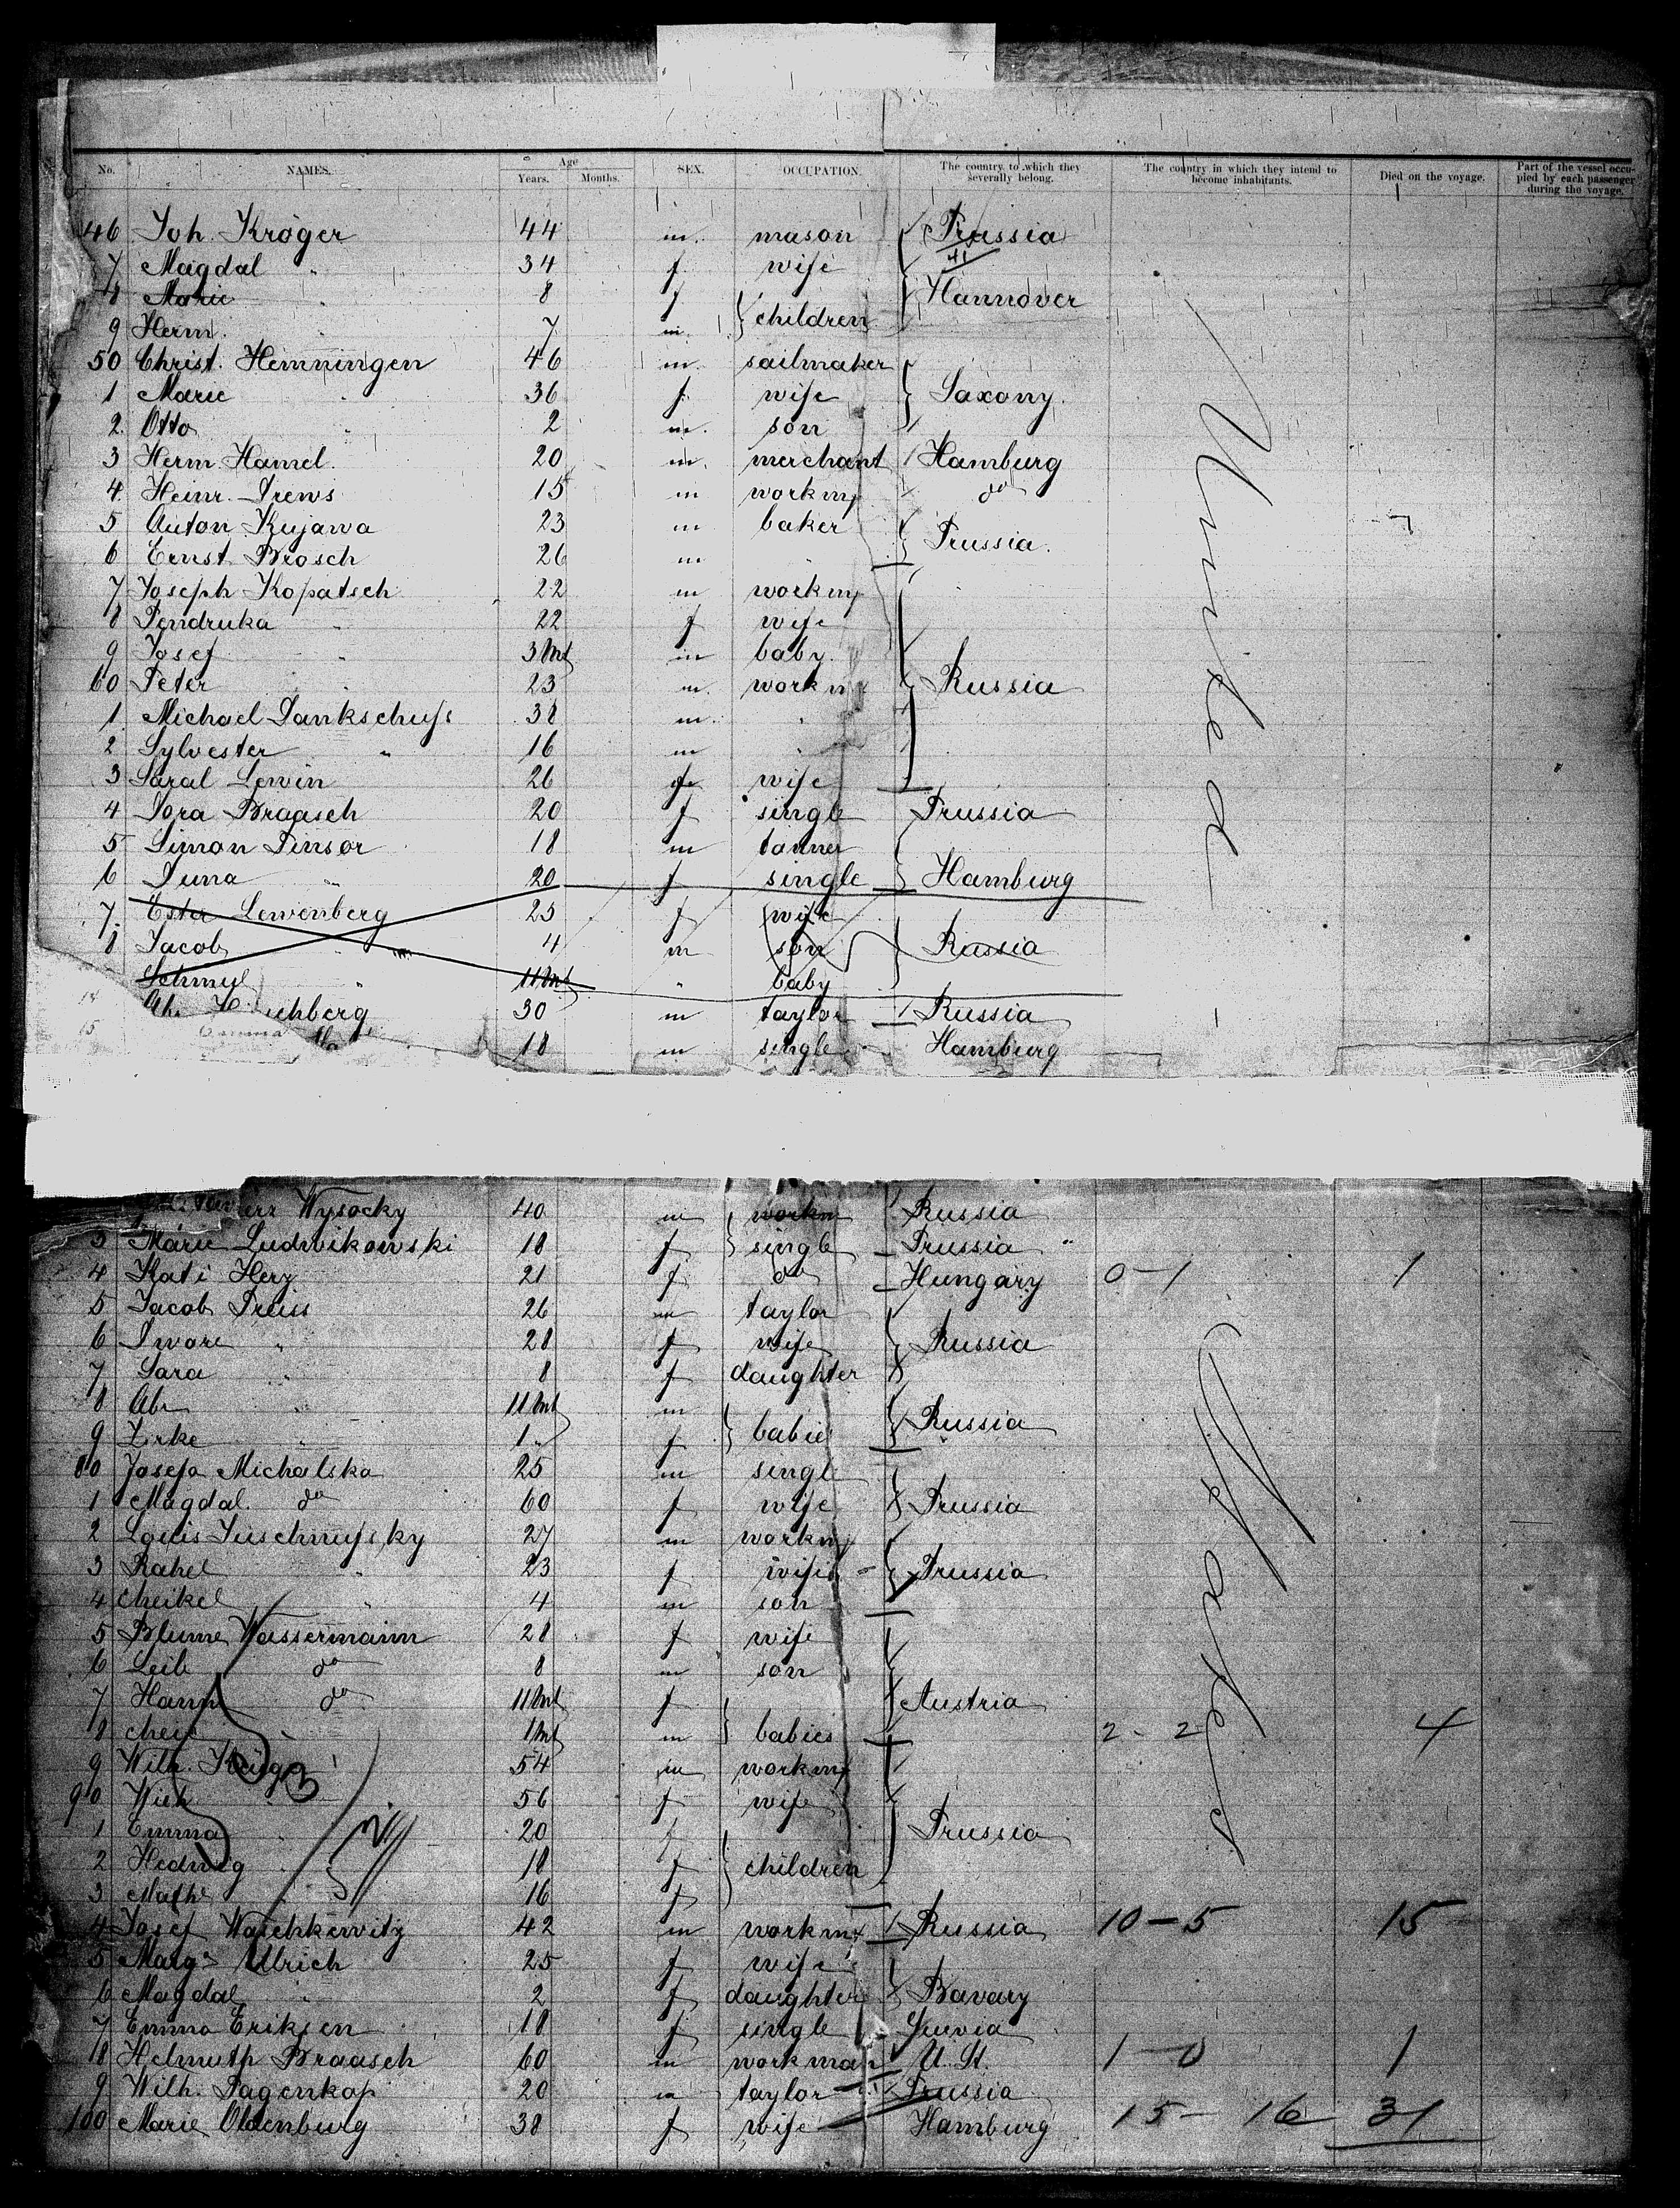 No. NAMES. Age Years. Months. SEX. OCCUPATION. The country to which they severally belong. The country in which they intend to become inhabitants. Died on the voyage. Part of the vessel occupied by each passenger during the voyage.
46 Joh. Kröger 44 m. mason Prussia
41
7 Magdal " 34 f. wife
8 Marie " 8 f children Hannover
9 Herm. " 7 m.
50 Christ. Henningen 46 m. sailmaker
1 Marie " 36 f. wife Saxony.
2. Otto " 2 m. son
3 Herm. Hamel. 20 m. merchant Hamburg
4. Heinr. Drews 15 m workm do
5 Anton Kujawa 23 m baker Prussia.
6 Ernst Brosch 26 m "
7 Joseph Kopatsch 22 m workm
8 Pendruka " 22 f wife
9 Josef " 3 Mt m baby.
60 Peter " 23 m. workm Russia
1. Michael 38 m. "
2 Sylvester " 16 m "
3 Saral Lewin 26 f wife
4 Dora Braasch 20 f single Prussia
5 Simon Pinsor 18 m tanner
6 " 20 f single Hamburg
7. Ester Lewenberg 25 f wife
8 Jacob " 4 m son Russia
Schmul " 11 Mt " baby
14 30 m taylor Russia
15 Emma 18 m single Hamburg
United
Wysocky 40 m workm Russia
3 Marie Ludwikowski 18 f single Prussia "
4 Kati Herz 21 f do Hungary 0-1 1
5 Jacob Preiss 26 m taylor
6 Dwore " 28 f wife Russia
7 Sara " 8 f daughter
8 Abr " 11 Mt m babies Russia
9 Zirke " 1 " f
80 Josefa Michalska 25 m single
1 Magdal. do 60 f wife Prussia
2 Louis 27 m workm
3 Rahel " 23 f wife Prussia
4 Cheikel " 4 m son
5 Blume Wassermann 28 f wife
6 Leib do 8 m son
7 do 11 Mt f babies Austria
8 1 Mt m 2-2 4
9 Wilh. 54 m workm
90 56 f wife
1 Emma " 20 f children Prussia
2 Hedwig " 18 f
3 16 f
4 Josef Waschkewitz 42 m workm Russia 10-5 15
5 Marg. Ulrich 25 f wife
6 Magdal " 2 f daughter Bavary
7 Emma Eriksen 18 f single
8 Helmuth Braasch 60 m workman U. St. 1-0 1
9 Wilh. Pagenkop 20 m taylor Prussia
100 Marie Oldenburg 38 f wife Hamburg 15-16 31
States